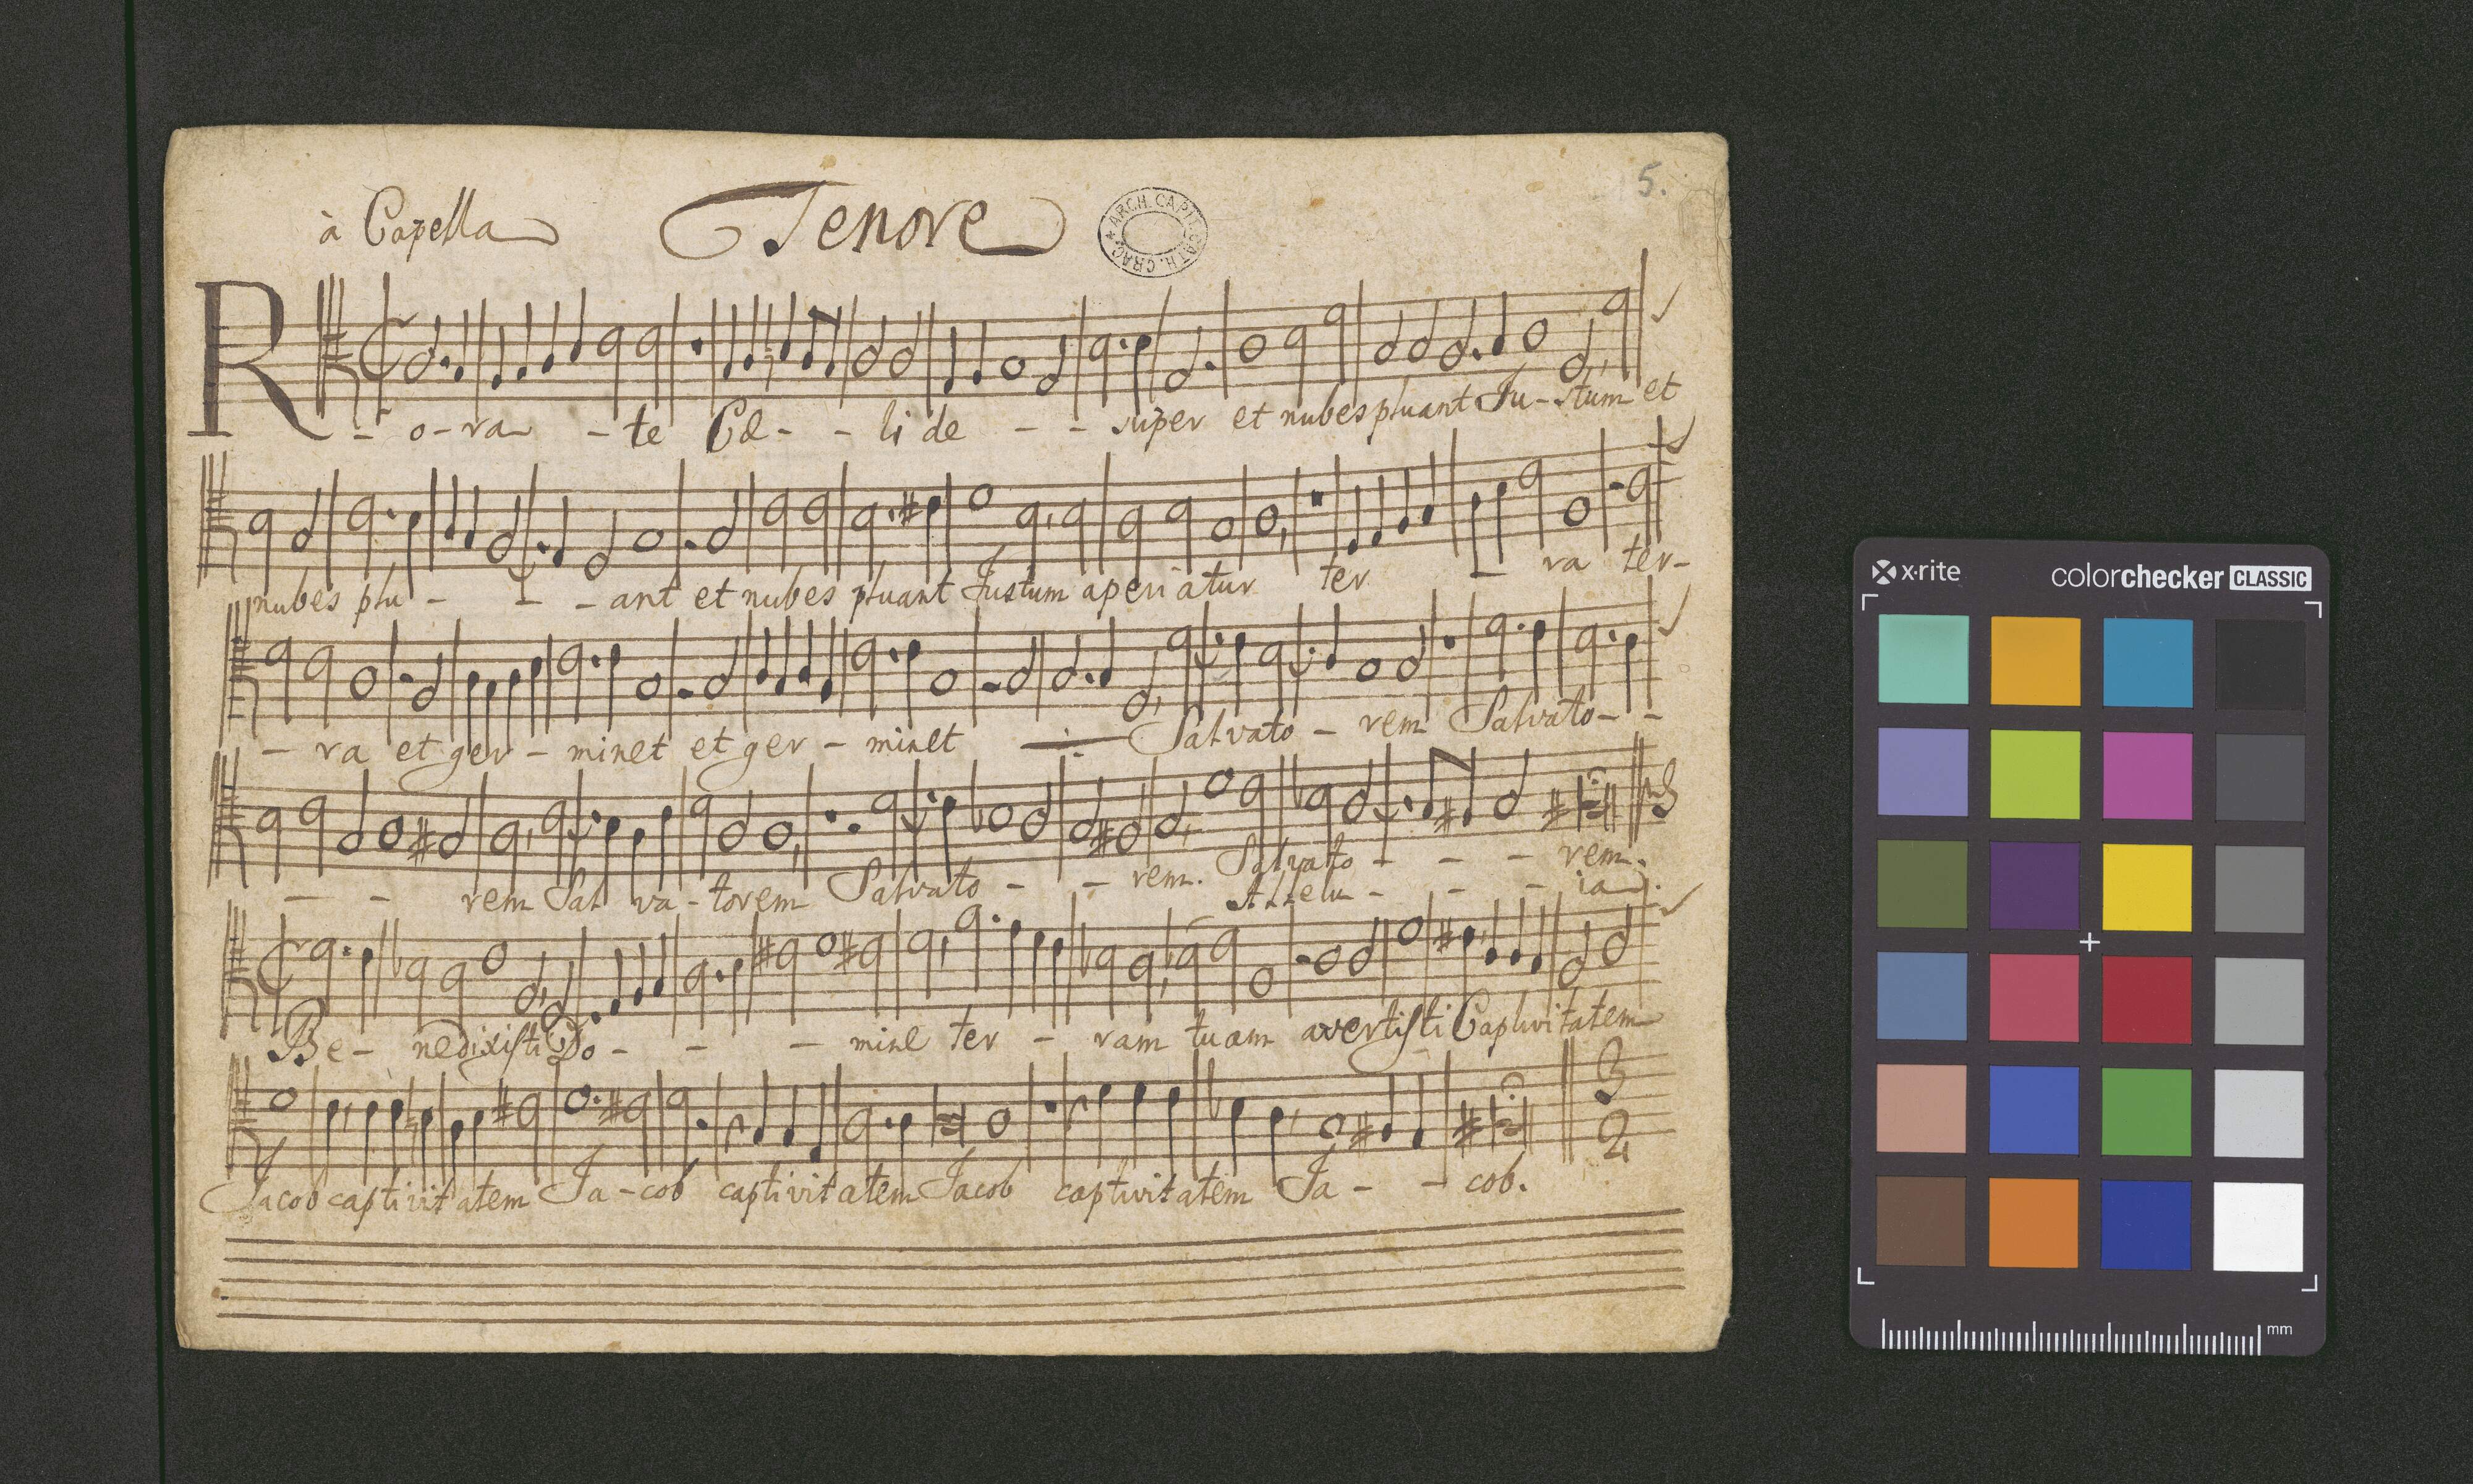 5.
à Capella Tenore
ARCH. CAPIT. CATH. CRAC.
R - o - ra - te Cæ - - li de - - super et nubes pluant Ju - stum et
nubes plu - - - ant et nubes pluant Justum aperiatur ter - ra ter -
- ra et ger - minet et ger - minet -:- Salvato - rem Salvato - -
- - rem Sal va - torem Salvato - - rem. Salvato - - - rem.
Allelu - - - ia.
Be - nedixisti Do - - - mine ter - ram tuam avertisti Captivitatem
Jacob captivitatem Ja - cob captivitatem Jacob captivitatem Ja - - cob.
3
2
x-rite
colorchecker CLASSIC
mm